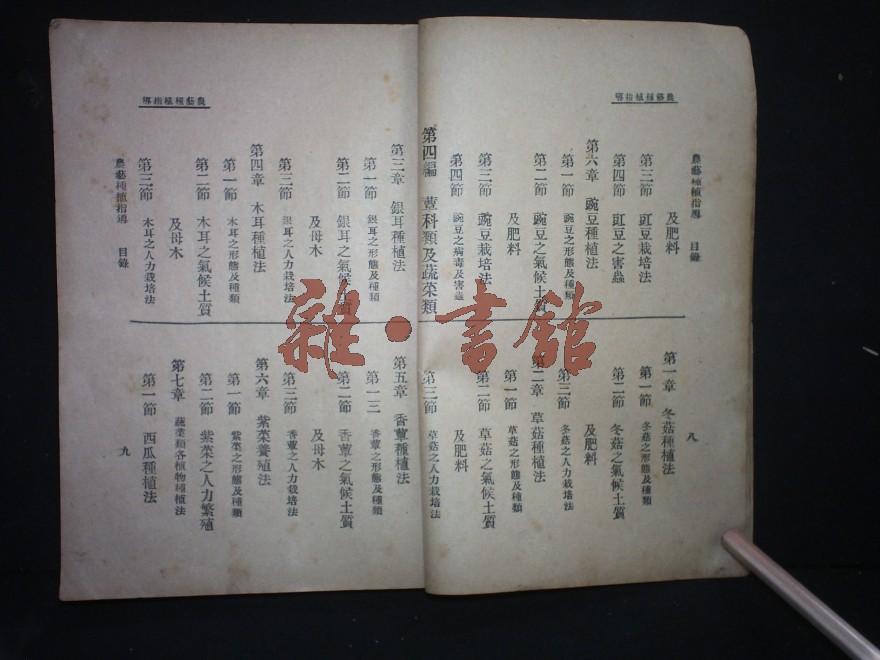 農藝種植指導
農藝種植指導 目錄 八
及肥料
第三節 豇豆栽培法
第四節 豇豆之害蟲
第六章 豌豆種植法
第一節 豌豆之形態及種類
第二節 豌豆之氣候土質
及肥料
第三節 豌豆栽培法
第四節 豌豆之病毒及害蟲
第四編 蕈科類及蔬菜類
第一章 冬菇種植法
第一節 冬菇之形態及種類
第二節 冬菇之氣候土質
及肥料
第三節 冬菇之人力栽培法
第二章 草菇種植法
第一節 草菇之形態及種類
第二節 草菇之氣候土質
及肥料
第三節 草菇之人力栽培法
農藝種植指導
第三章 銀耳種植法
第一節 銀耳之形態及種類
第二節 銀耳之氣候土質
及母木
第三節 銀耳之人力栽培法
第四章 木耳種植法
第一節 木耳之形態及種類
第二節 木耳之氣候土質
及母木
第三節 木耳之人力栽培法
第五章 香蕈種植法
第一三 香蕈之形態及種類
第二節 香蕈之氣候土質
及母木
第三節 香蕈之人力栽培法
第六章 紫菜養殖法
第一節 紫菜之形態及種類
第二節 紫菜之人力繁殖
第七章 蔬菜類各植物種植法
第一節 西瓜種植法
農藝種植指導 目錄 九
雜·書館